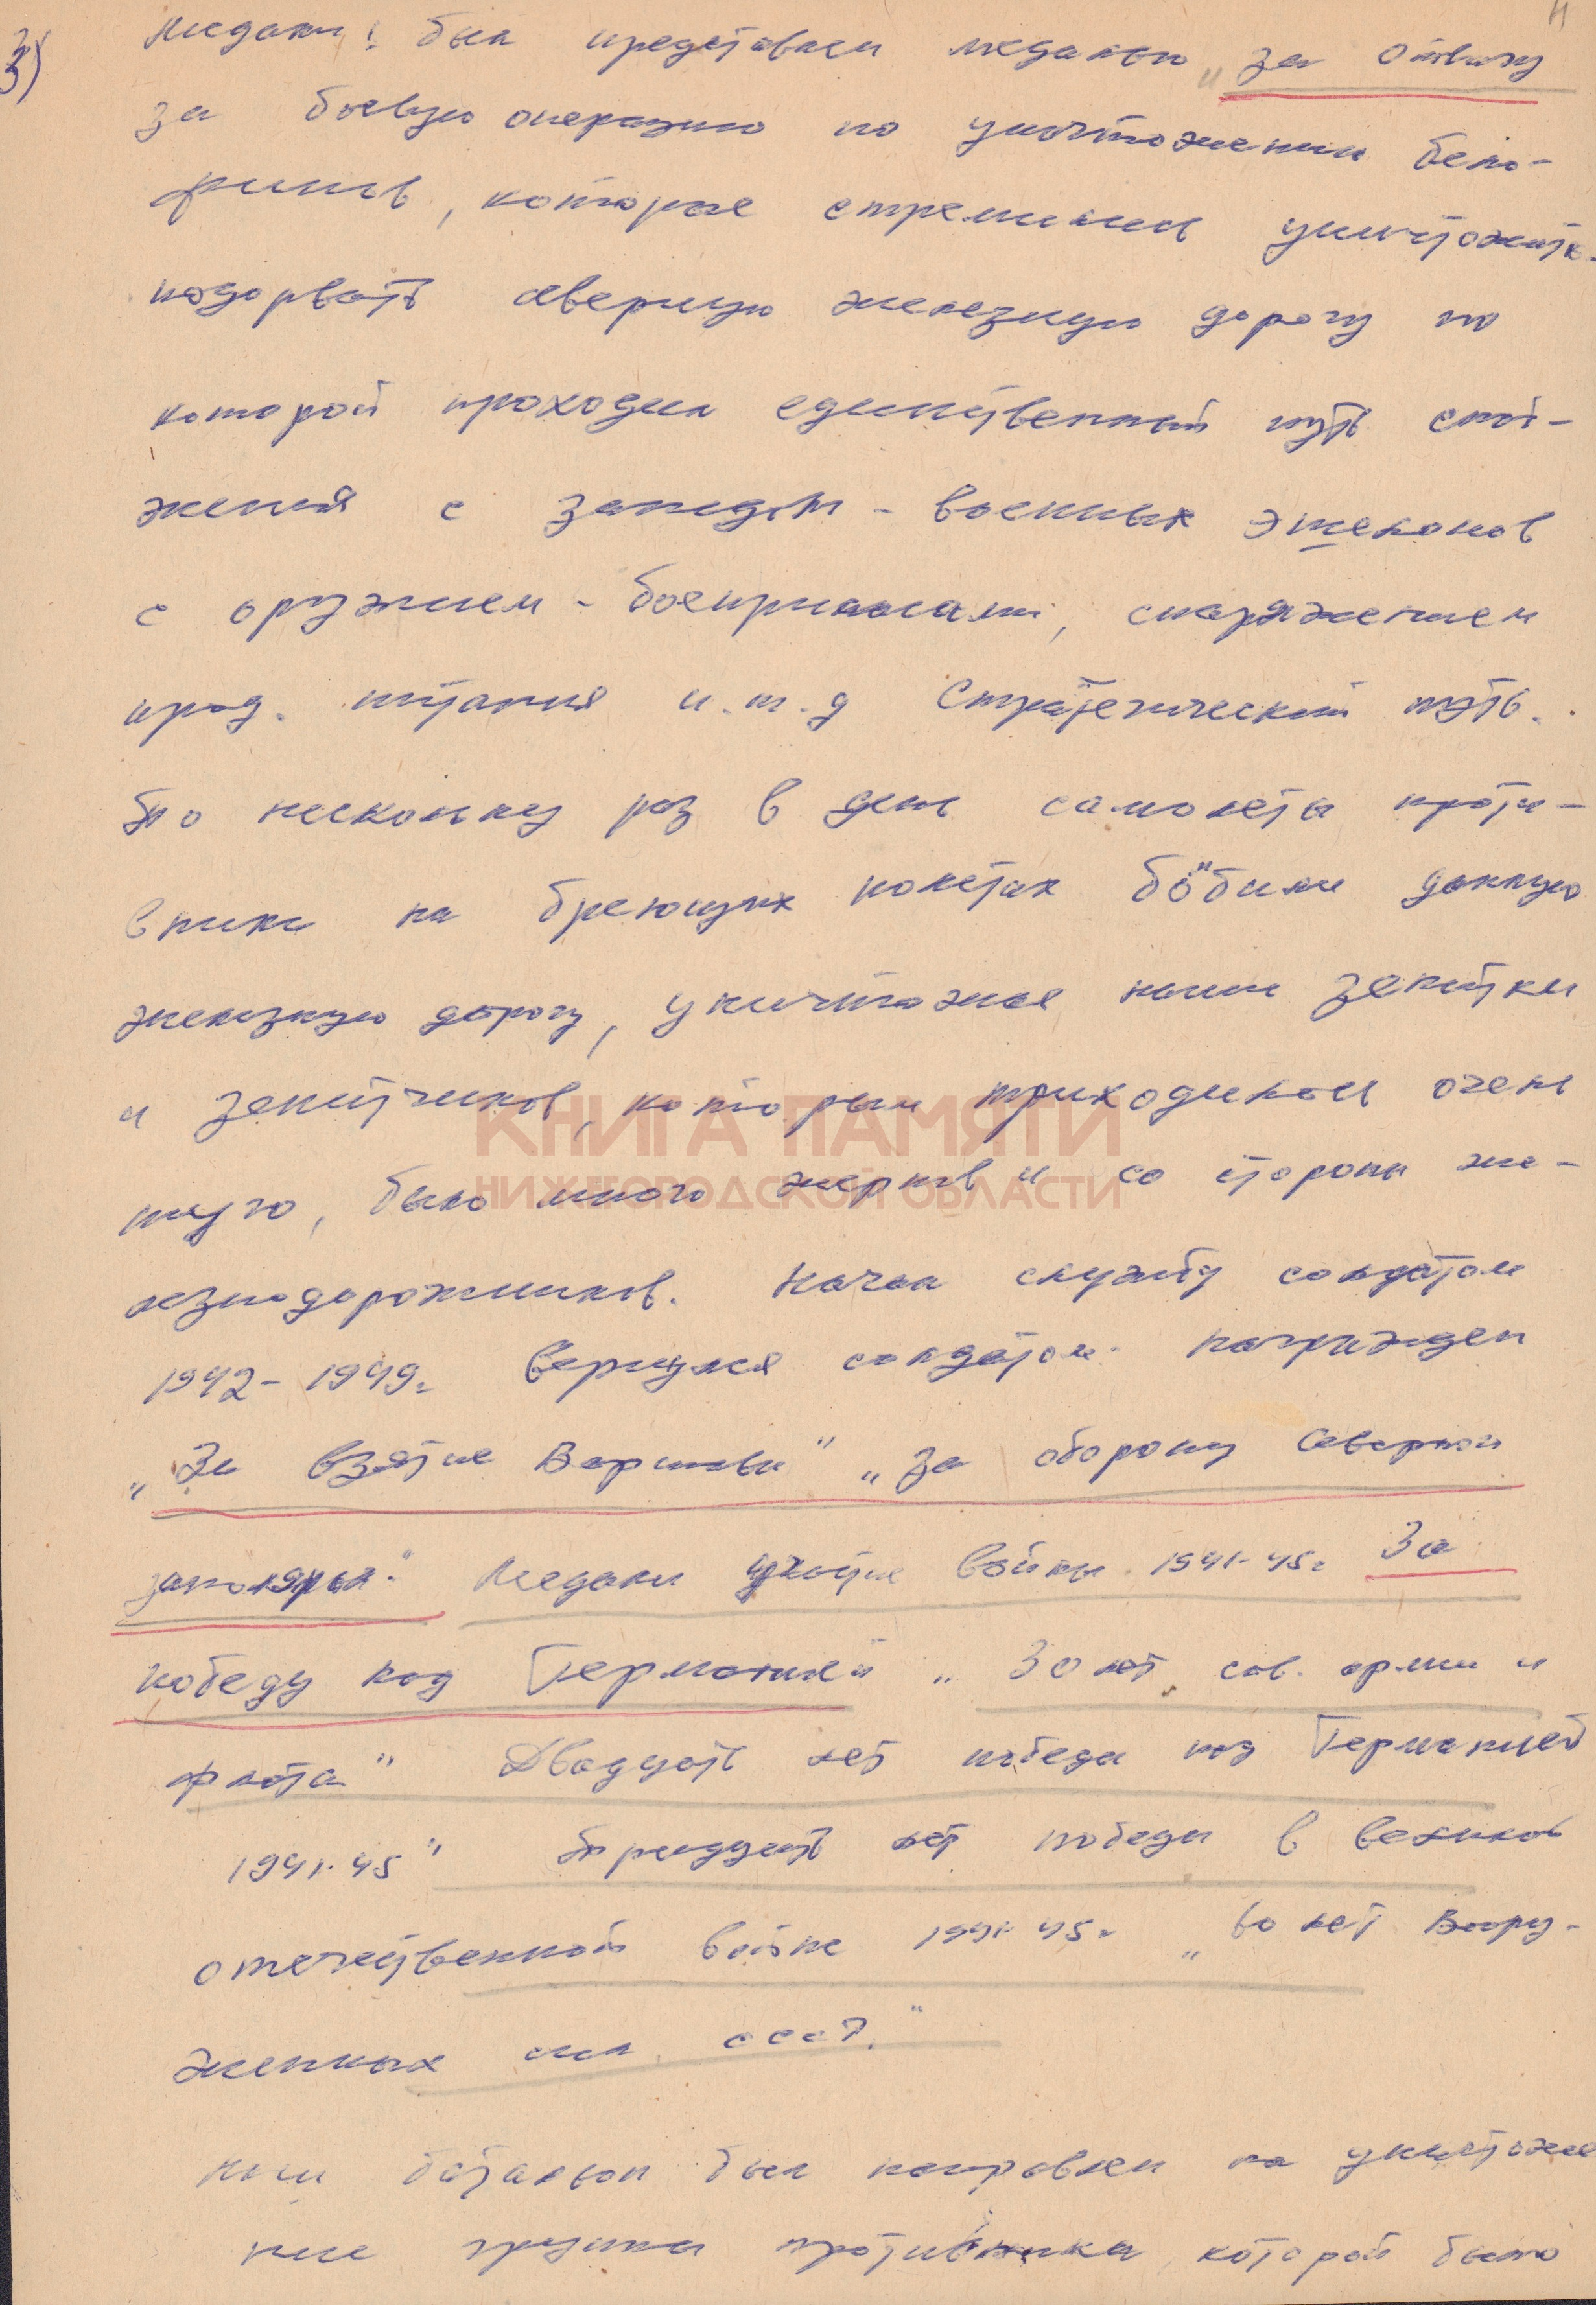 3)
Медали! был представлен медалью „за отвагу
за боевую операцию по уничтожении бело-
финнов, которые стремились уничтожить-
подорвать северную железную дорогу по
которой проходил единственный путь снаб-
жения с запада - военных эшелонов
с оружием - боеприпасами, снаряжением
прод. питания и.т.д Стратегический путь.
По нескольку раз в день самолеты проти-
вника на бреющих полетах бобили данную
железную дорогу, уничтожая наши зенитки
и зенитчиков, которым приходилось очень
туго, было много жертв и со стороны же-
лезнодорожников. Начал службу солдатом
1942- 1949г вернулся солдатом. награжден
„За взятие Варшавы" „За оборону Северной
заполярья." Медали участие войны 1941-45г За
победу над Германией „ 30 лет сов. армии и
флота" Двадцать лет победы над Германией
1941-45" Тридцать лет победы в великой
отечественной войне 1941-45г „60 лет Воору-
женных сил СССР."
наш батальон был направлен на уничтоже
ние группы противника которой было
КНИГА ПАМЯТИ
НИЖЕГОРОДСКОЙ ОБЛАСТИ